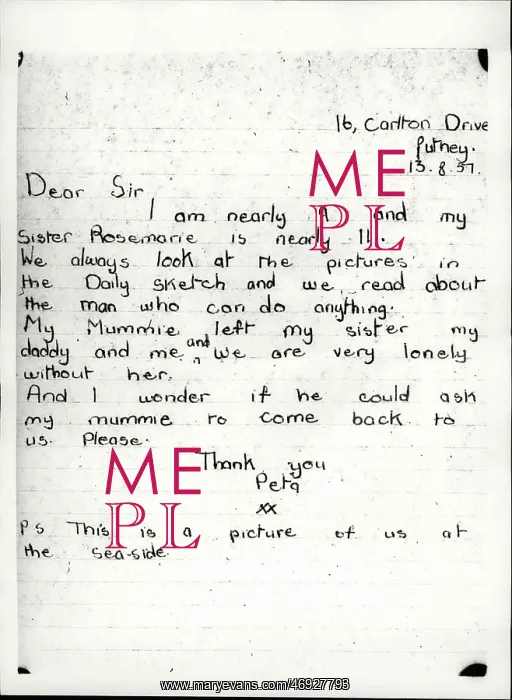 16, Carlton Drive
Putney.
13.8.57.
Dear Sir
I am nearly and my
Sister Rosemarie is nearly 11.
We always look at the pictures in
the Daily sketch and we read about
the man who can do anything.
My Mummie left my sister my
daddy and me, and We are very lonely
without her.
And I wonder if he could ask
my mummie to come back to
us. Please.
Thank you
Peta
xx
PS This is a picture of us at
the sea-side.
ME
PL
ME
PL
www.maryevans.com/46927793